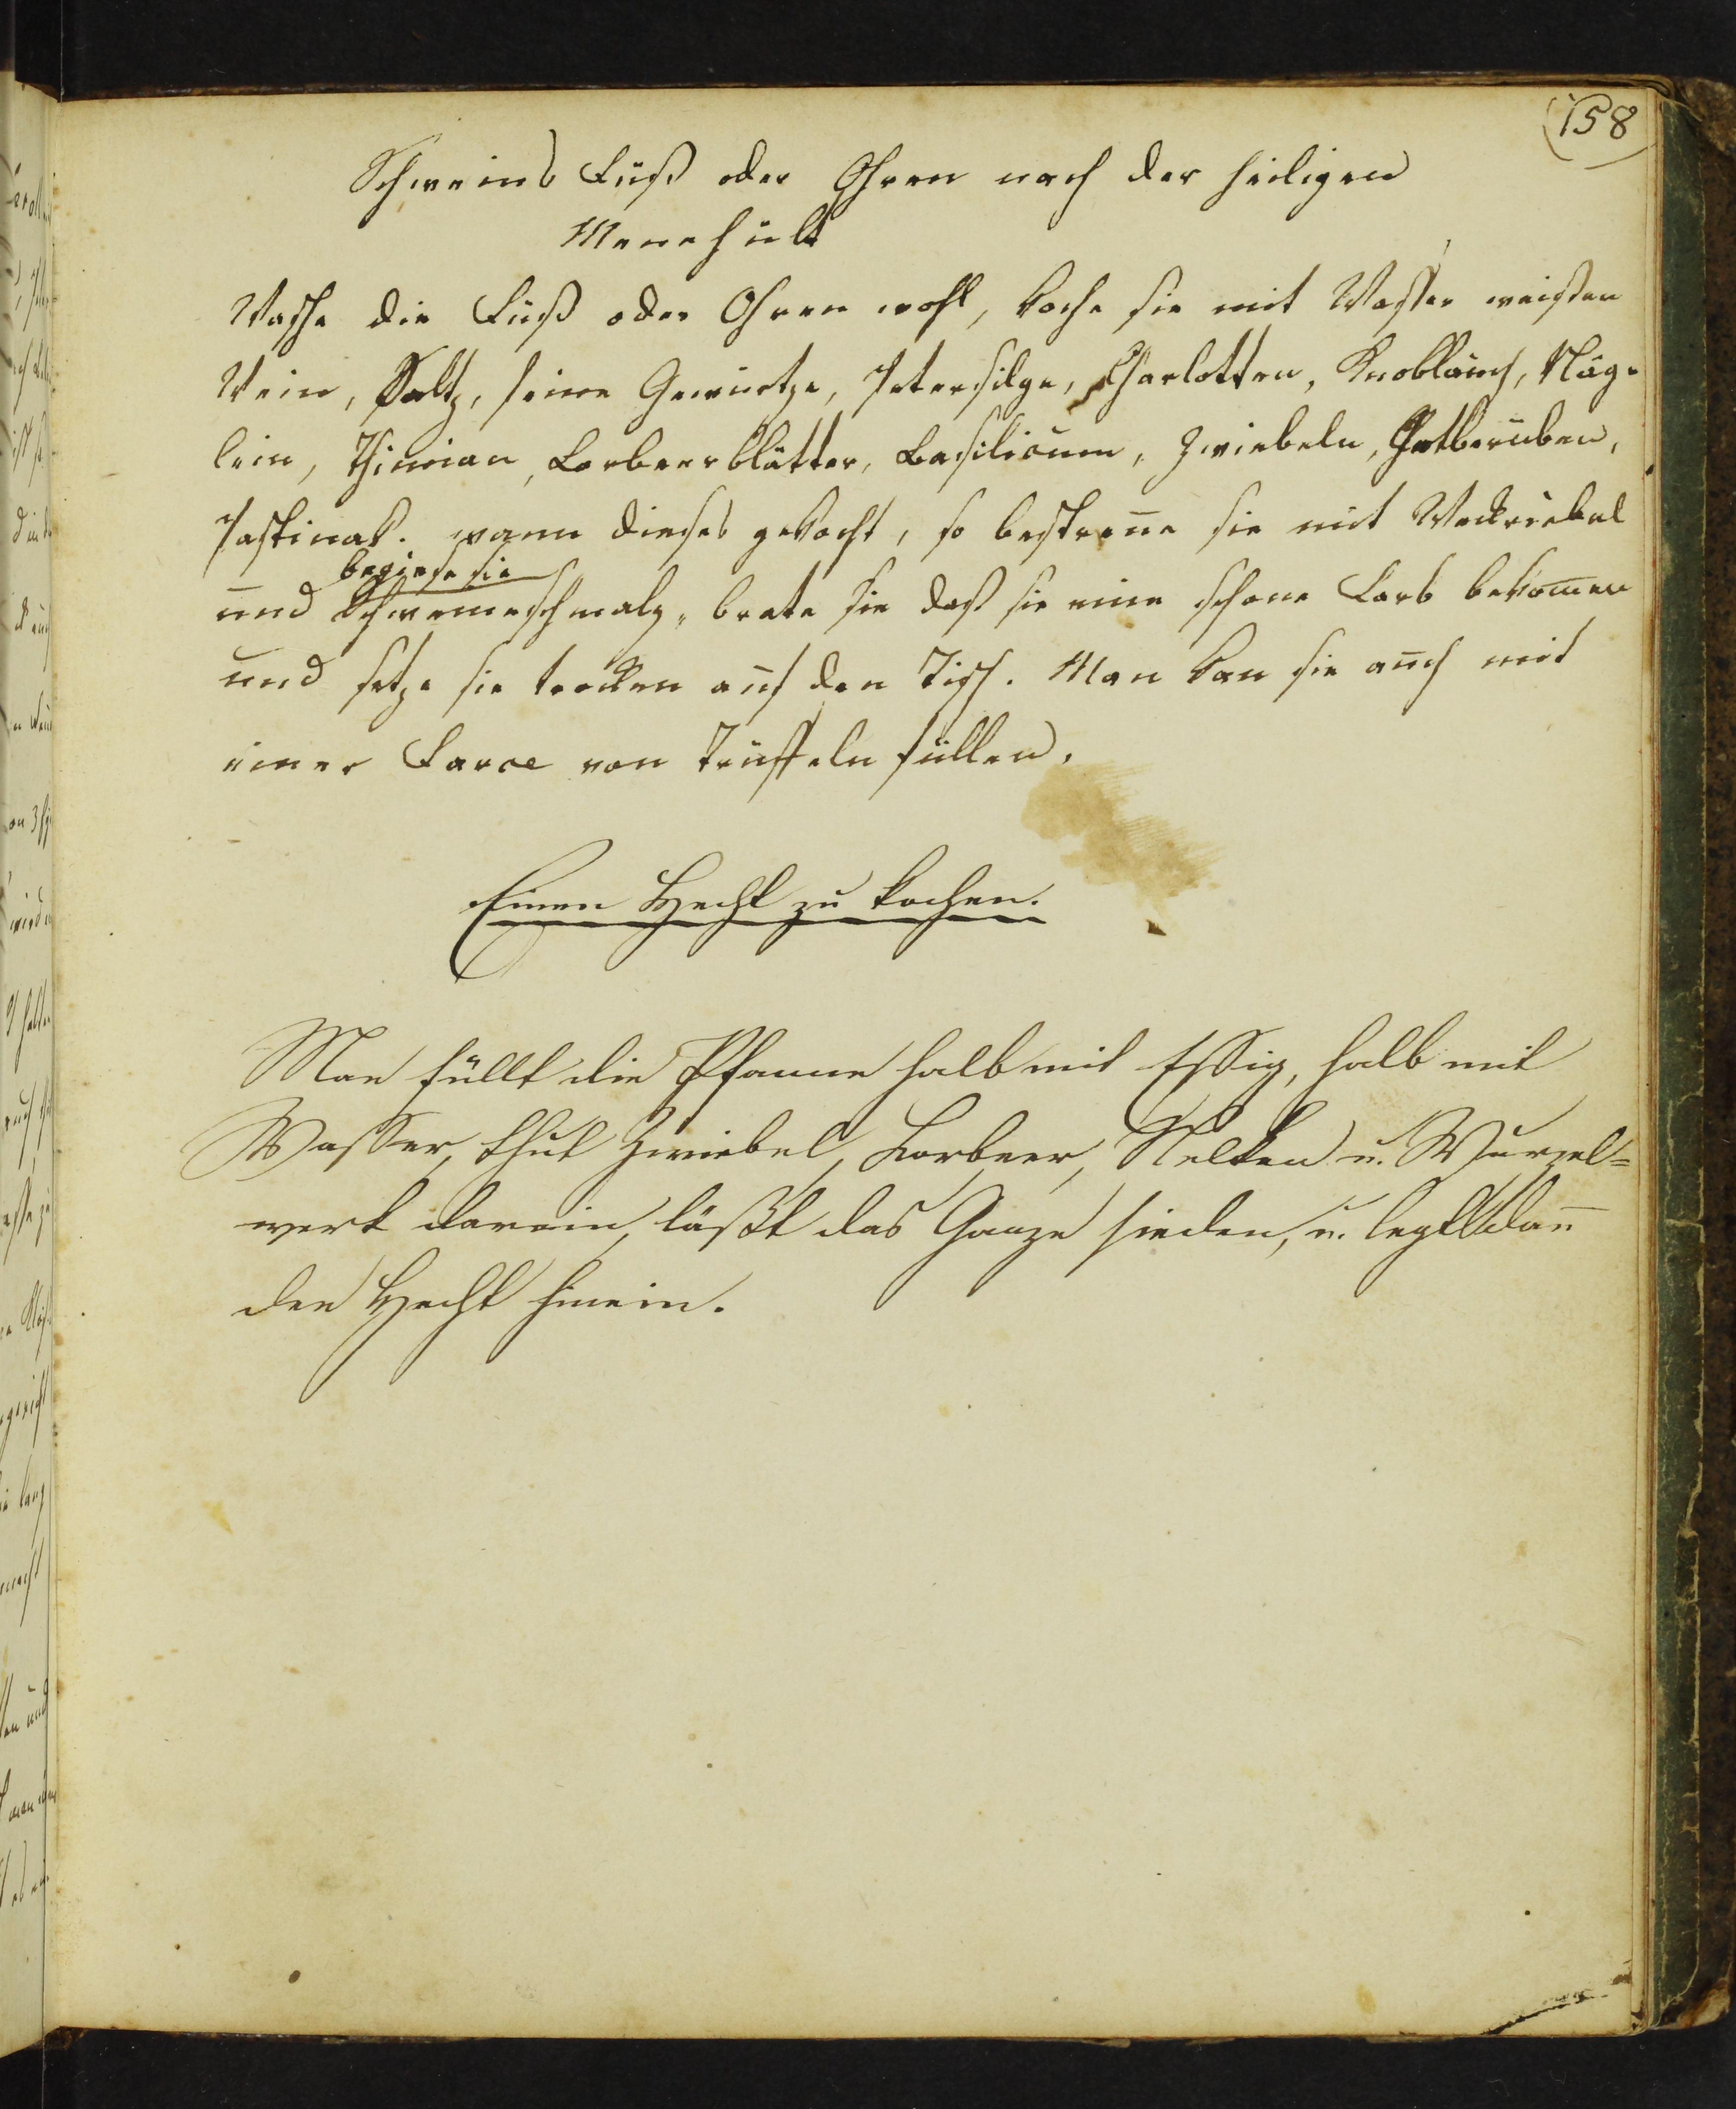 158
Schweins Füß oder Ohren nach der heiligen
Menehült
Wasche die Füß oder Ohren wohl, koche sie mit Wasser weissen
Wein, Saltz, feine Gewürtze, Petersilge, Charlotten, Knoblauch, Näg-
lein, Thimian, Lorbeerblätter, Basilicum, Zwiebeln, Gelberüben,
Pastinak. wann dieses gekocht, so bestreue sie mit Weckriebel
begiese sie
und Schweineschmalz, brate sie daß sie eine schöne Farb bekom̄en
und setze sie trocken auf den Tisch. Man kan sie auch mit
einer Farce von Trüffeln füllen.
Einen Hecht zu kochen.
Man füllt die Pfanne halb mit Essig, halb mit
Wasser, thut Zwiebel, Lorbeer, Nelken u. Wurzel=
werk darein, läßt das Ganze sieden, u. legt dan̄
den Hecht hinein.